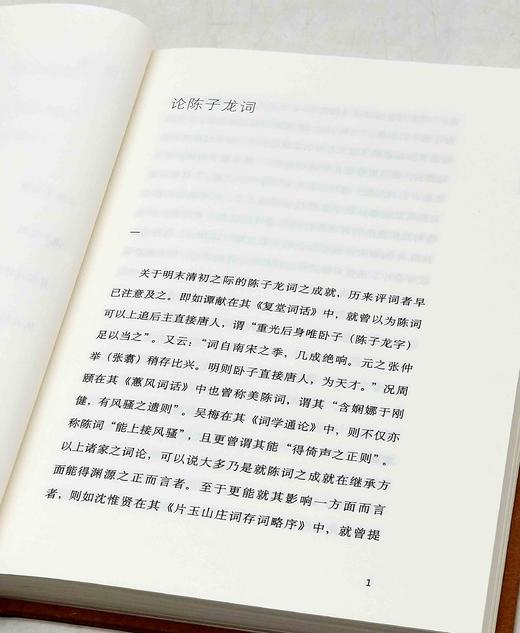 论陈子龙词
一
关于明末清初之际的陈子龙词之成就，历来评词者早
已注意及之。即如谭献在其《复堂词话》中，就曾以为陈词
可以上追后主直接唐人，谓“重光后身唯卧子（陈子龙字）
足以当之”。又云：“词自南宋之季，几成绝响。元之张仲
举（张翥）稍存比兴。明则卧子直接唐人，为天才。”况周
颐在其《蕙风词话》中也曾称美陈词，谓其“含婀娜于刚
健，有风骚之遗则”。吴梅在其《词学通论》中，则不仅亦
称陈词“能上接风骚”，且更曾谓其能“得倚声之正则”。
以上诸家之词论，可以说大多乃是就陈词之成就在继承方
面能得渊源之正而言者。至于更能就其影响一方面而言
者，则如沈惟贤在其《片玉山庄词存词略序》中，就曾提
1